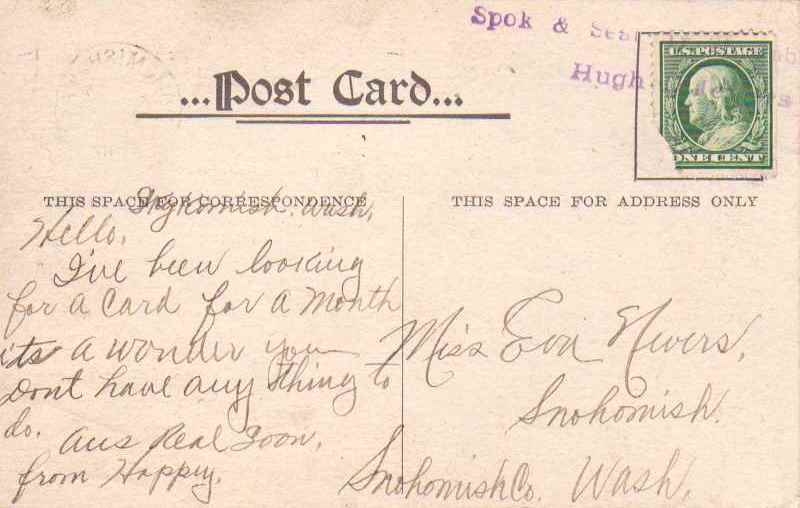 Spok & Sea
Hugh
U.S. POSTAGE
ONE CENT
...Post Card...
THIS SPACE FOR CORRESPONDENCE
THIS SPACE FOR ADDRESS ONLY
Skykomish. Wash,
Hello,
I've been looking
for a Card for a Month
its a wonder you
dont have any thing to
do.
Ans Real Soon,
from Happy.
Miss Eva Nevers,
Snohomish.
Snohomish Co. Wash,